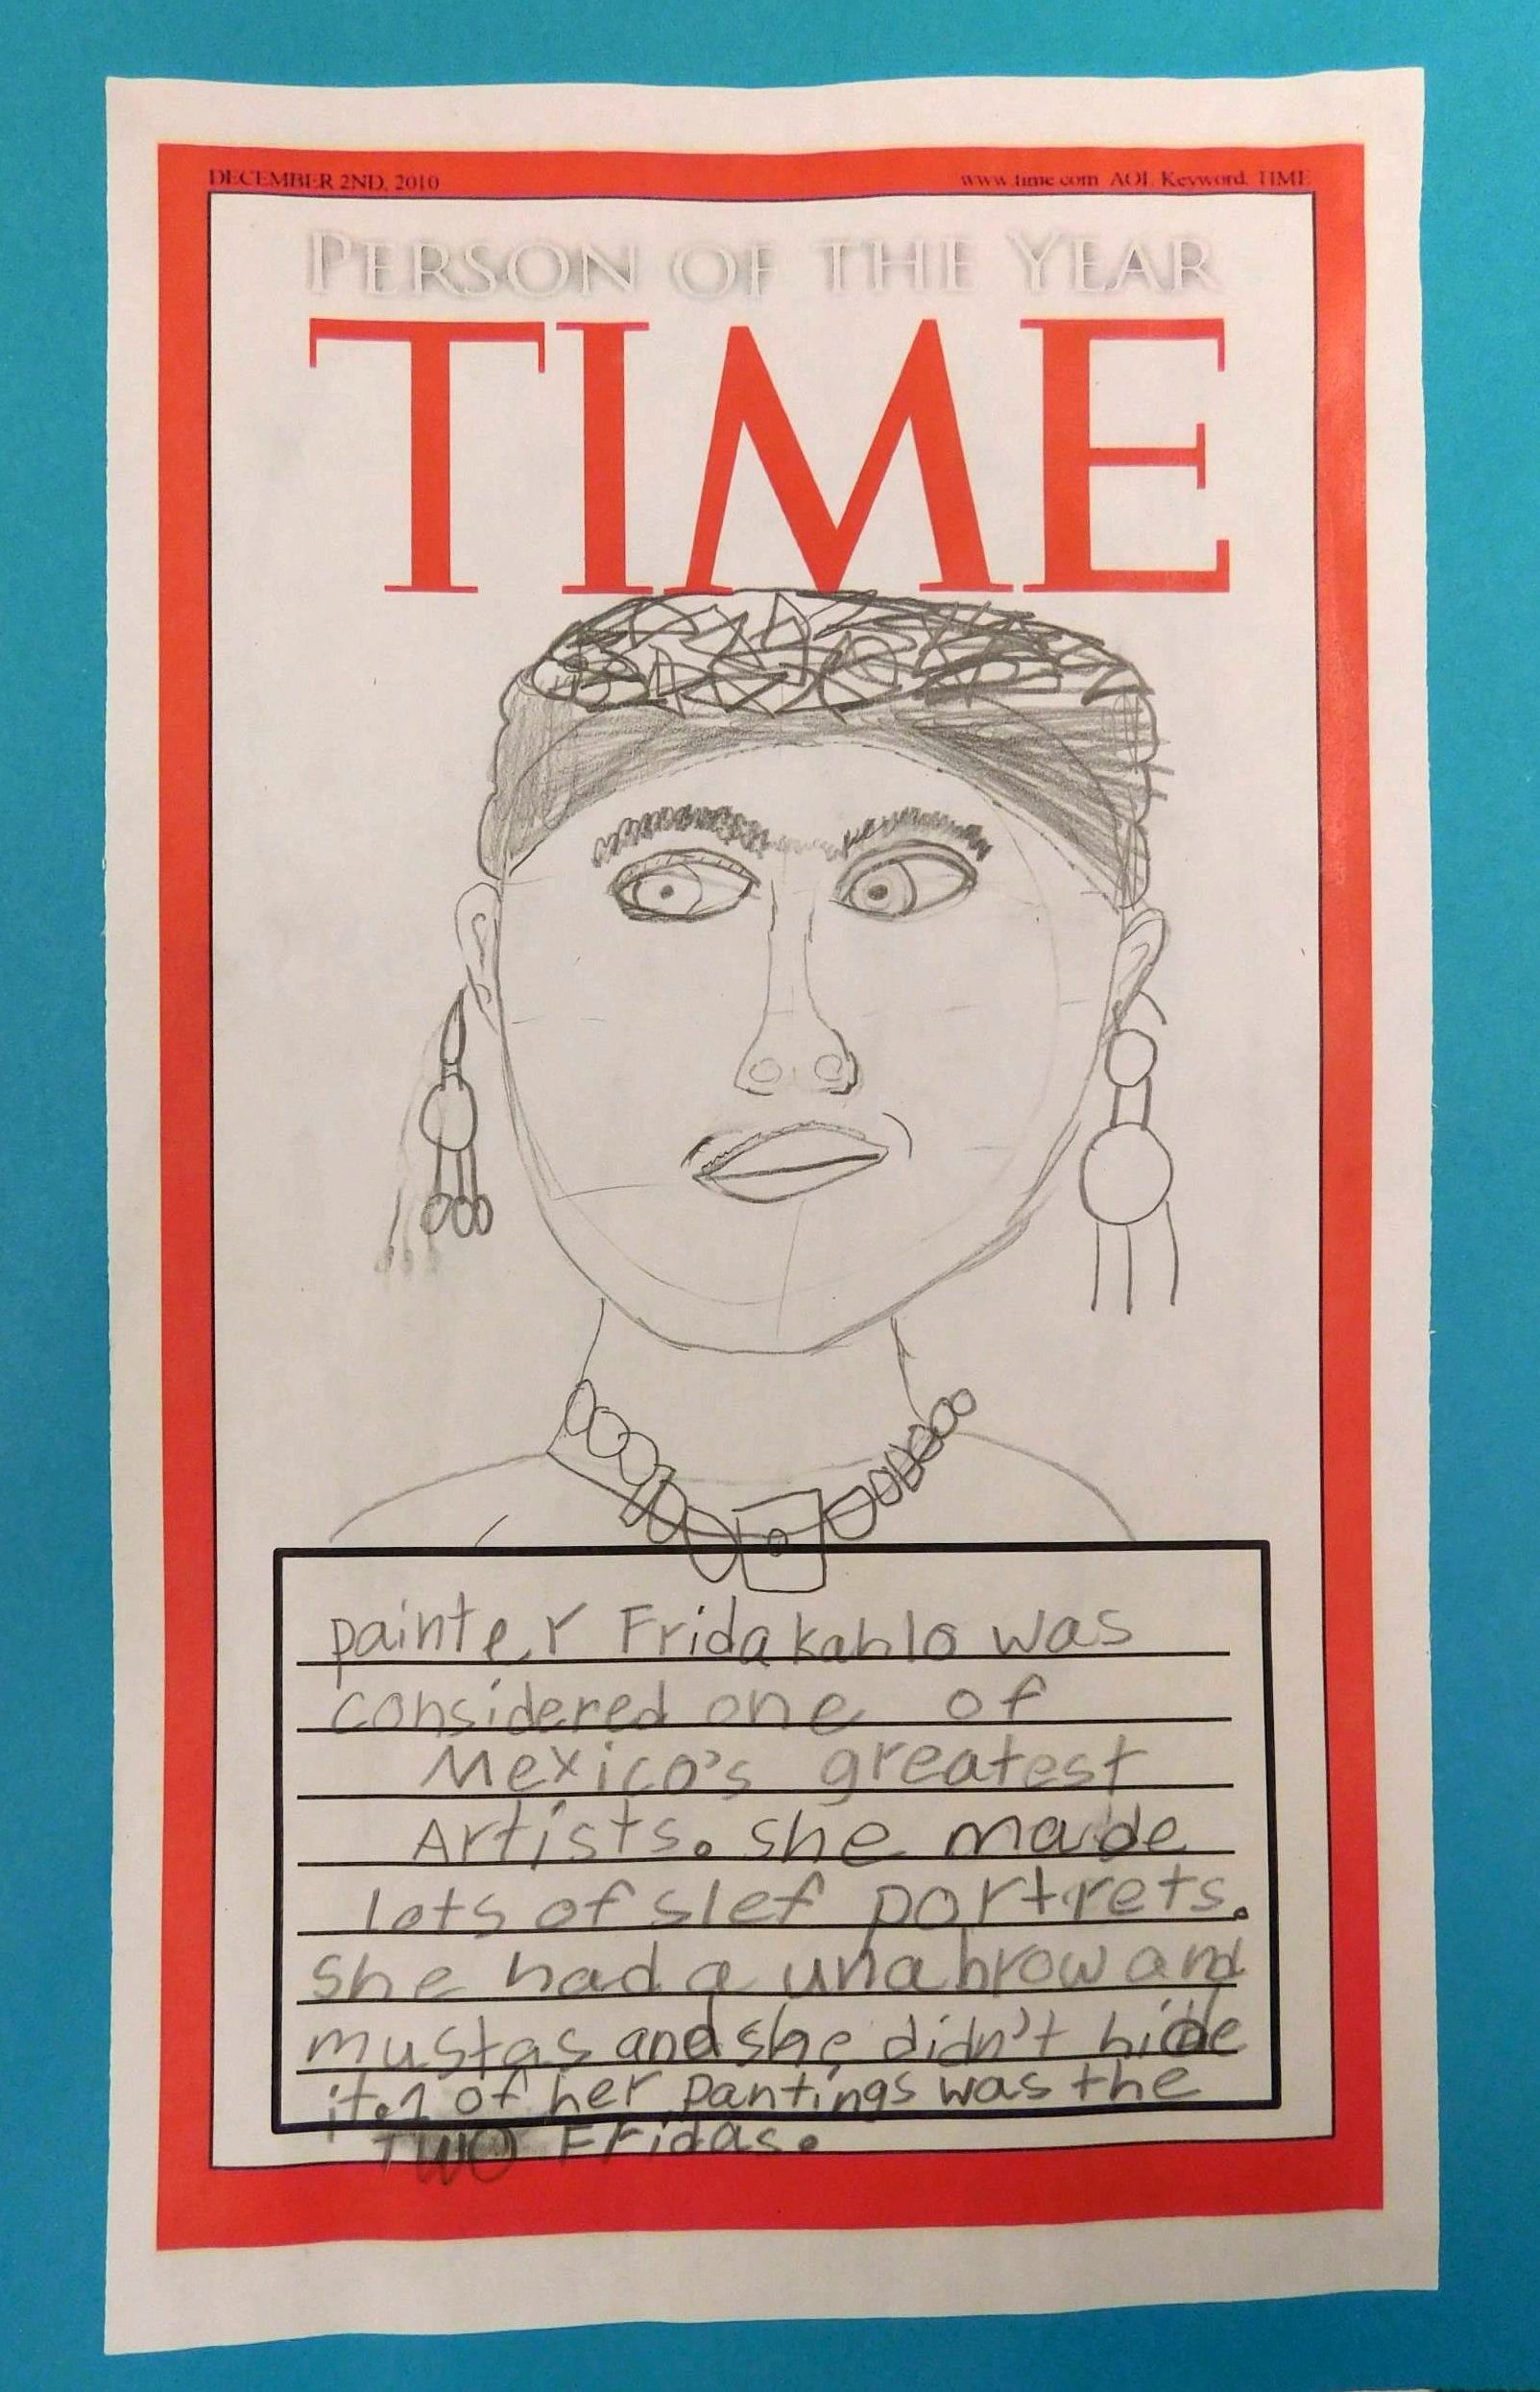 DECEMBER 2ND, 2010
www.time.com AOL Keyword: TIME
PERSON OF THE YEAR
TIME
painter Frida kahlo was
considered one of
Mexico's greatest
Artists. she made
lots of slef portrets.
she had a unabrow and
mustas and she didn't hide
it. 1 of her pantings was the
TWO Fridas.